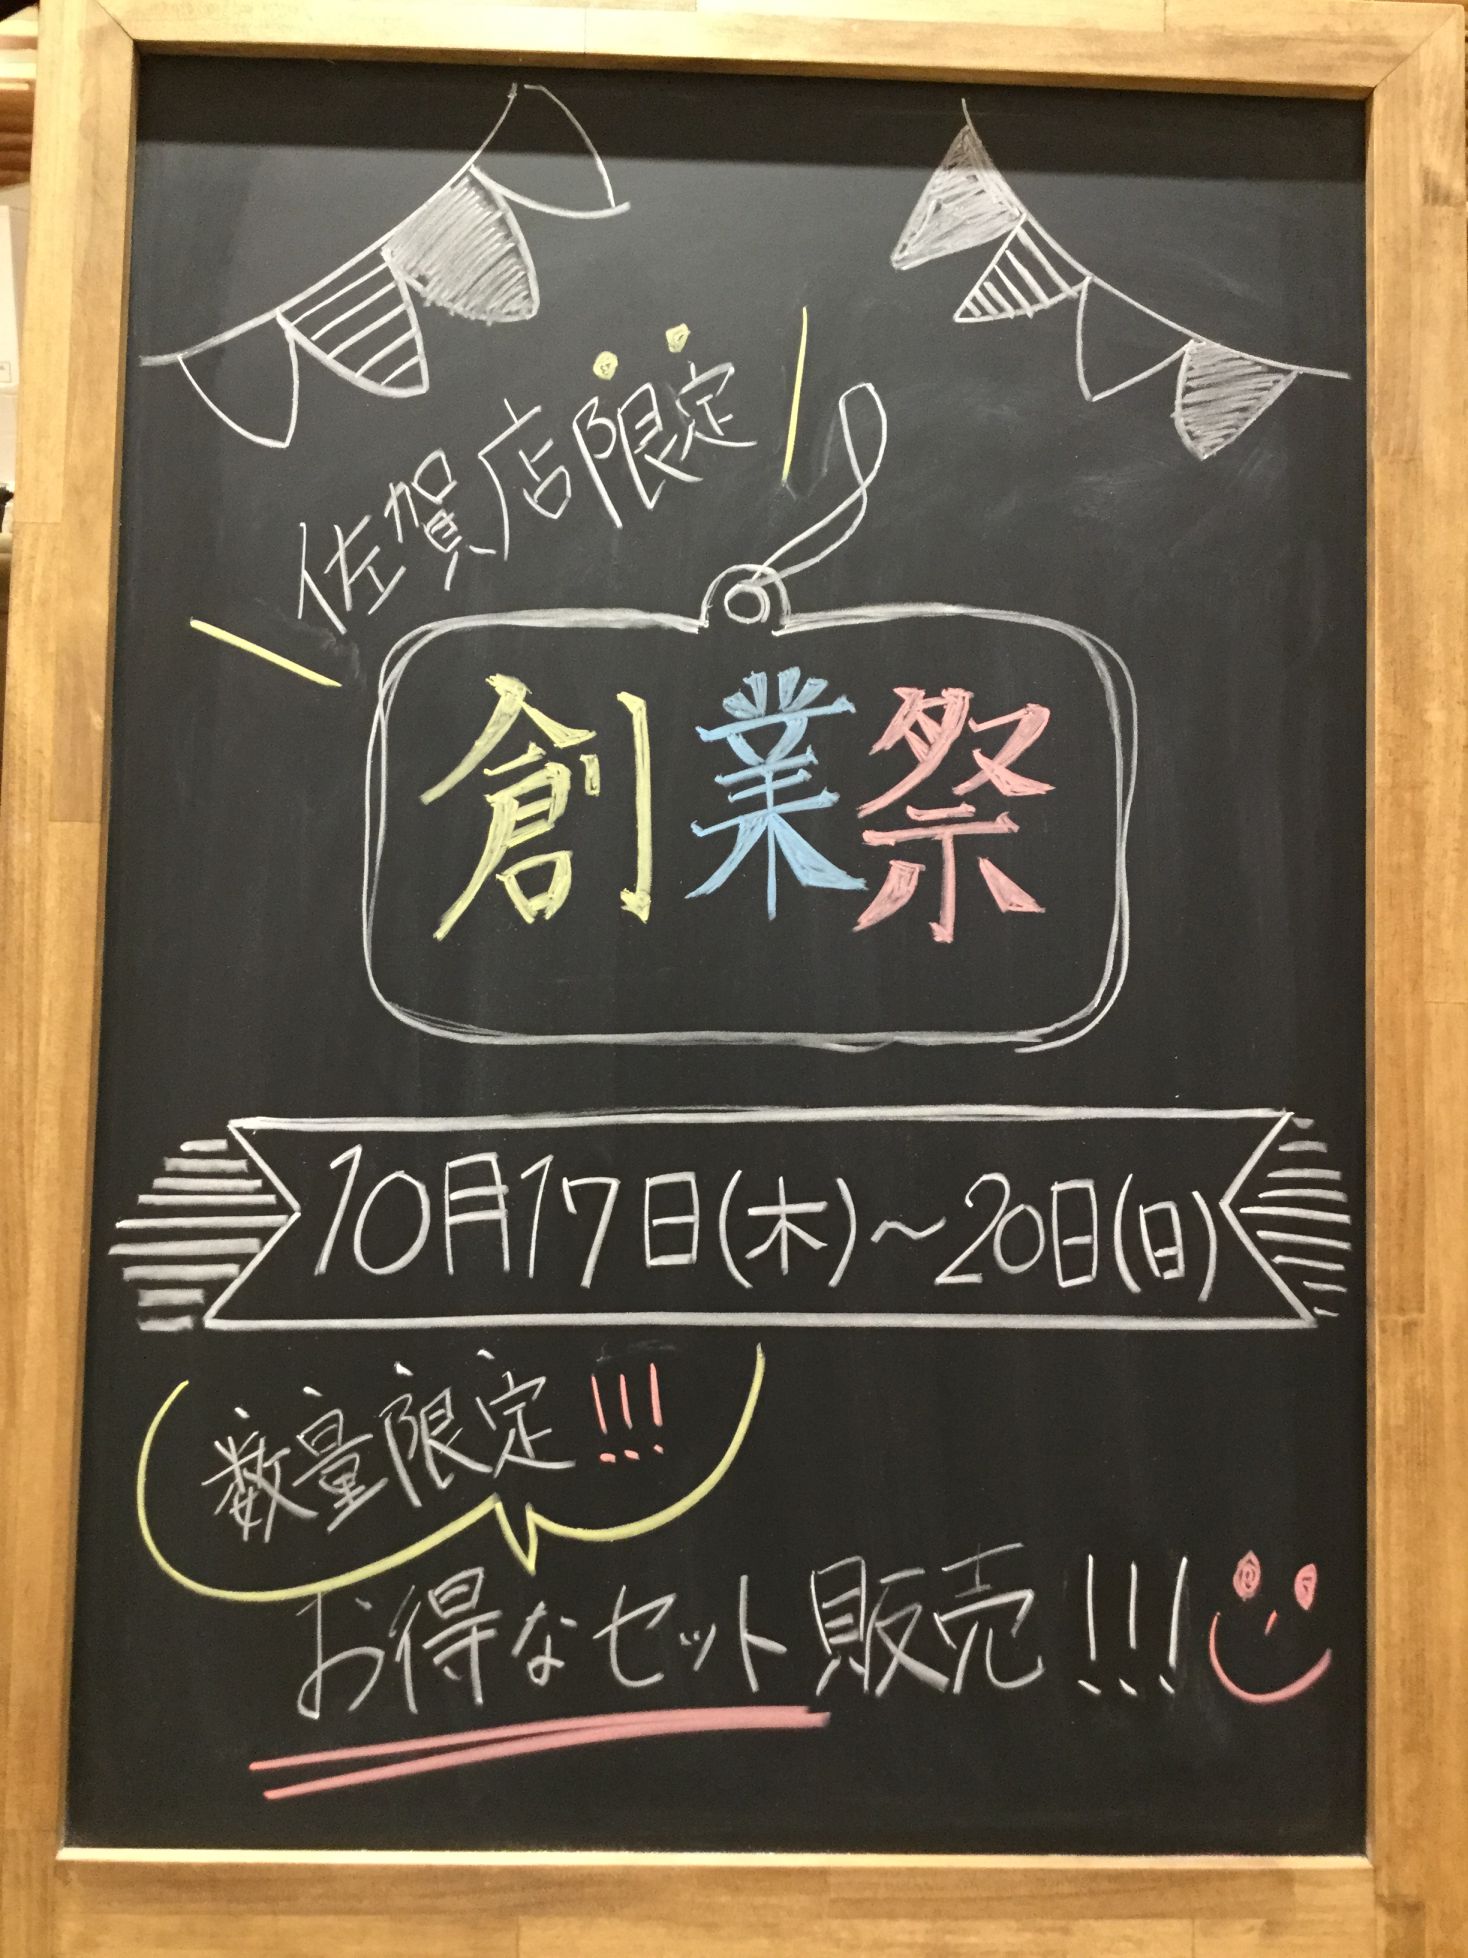 佐賀店限定
創業祭
10月17日(木)～20日(日)
数量限定!!!
お得なセット販売!!!